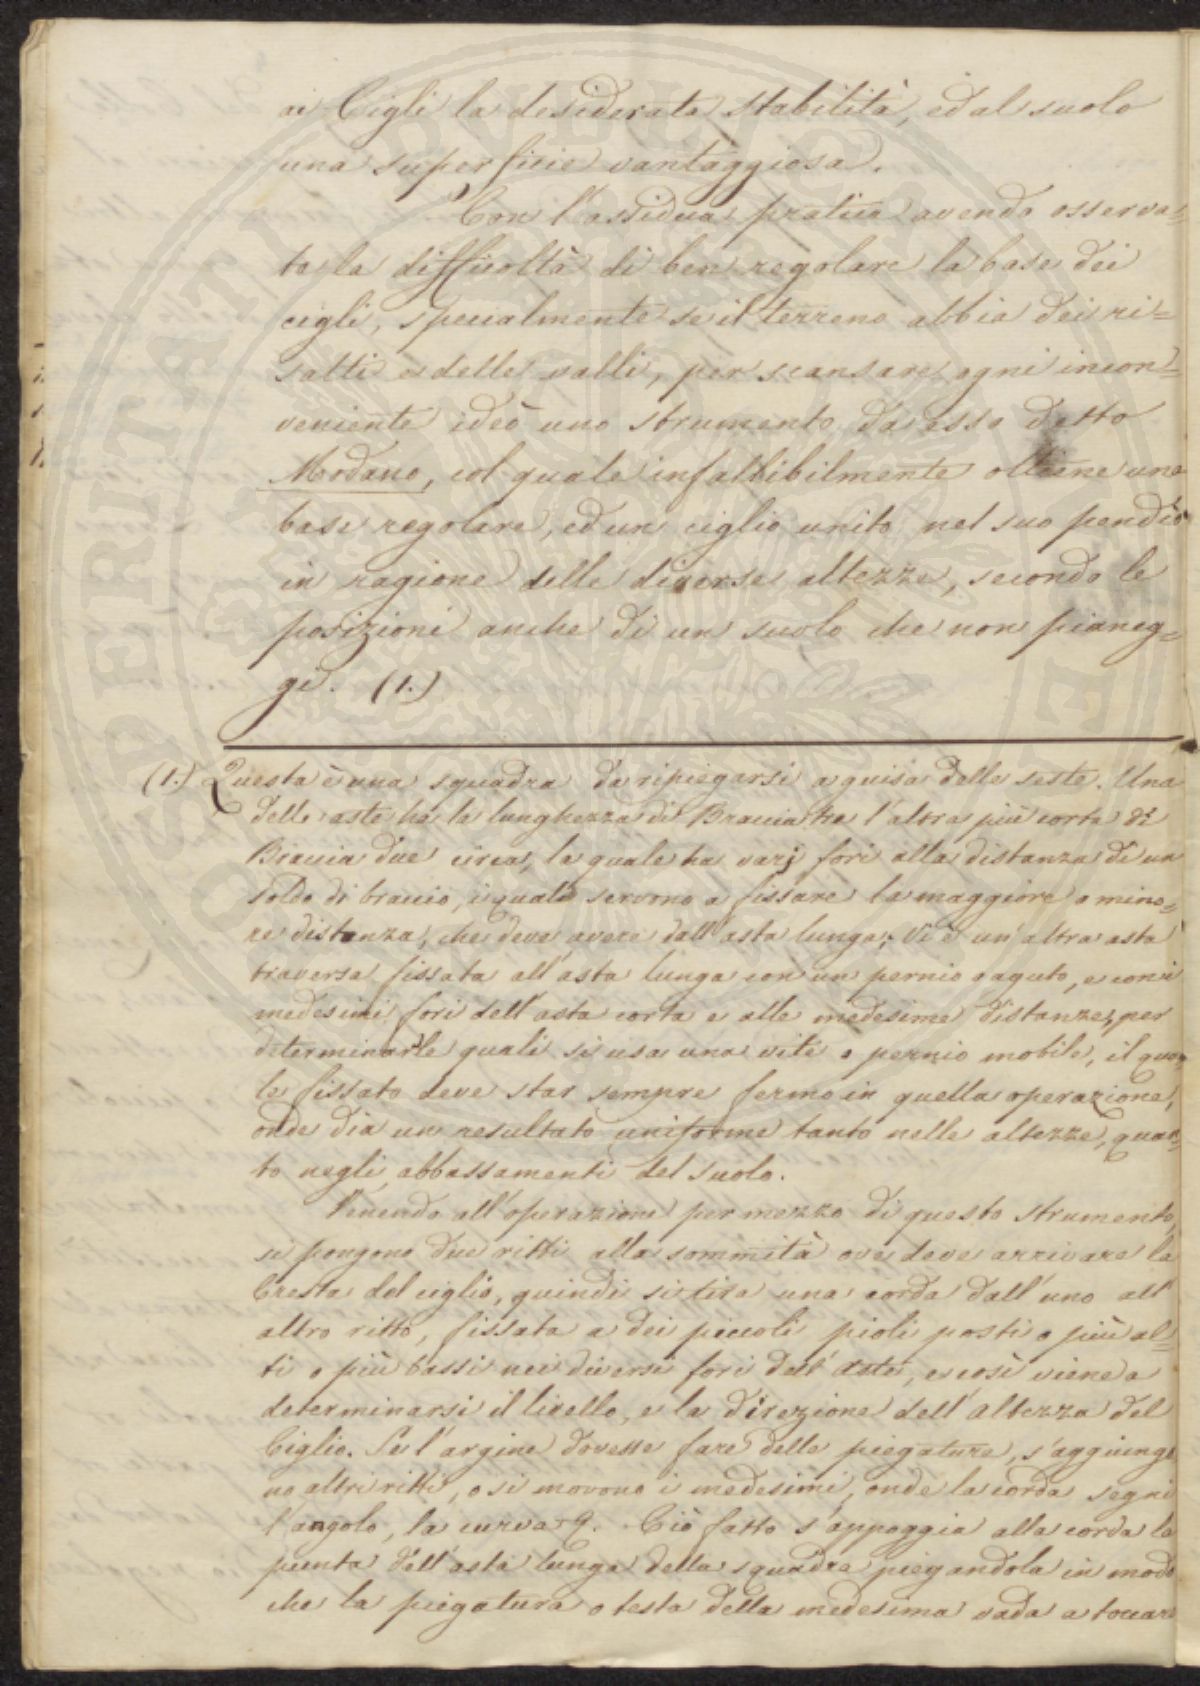 ai Cigli la desiderata stabilità, ed al suolo
una superficie vantaggiosa.
Con l'assidua pratica avendo osserva=
to la difficoltà di ben regolare la base dei
cigli, specialmente se il terreno abbia dei ri=
salti e delle valli, per scansare ogni incon=
veniente ideò uno strumento da esso detto
Modano, col quale infallibilmente ottiene una
base regolare, ed un ciglio unito nel suo pendio
in ragione delle diverse altezze, secondo le
posizioni anche di un suolo che non pianeg=
gi. (1.)
(1.) Questa è una squadra da ripiegarsi a guisa delle seste. Una
delle aste ha la lunghezza di Braccia tre l'altra più corta di
Braccia due circa, la quale ha varj fori alla distanza di un
soldo di braccio, i quali servono a fissare la maggiore o mino=
re distanza, che deve avere dall'asta lunga; Vi è un'altra asta
traversa fissata all'asta lunga con un pernio o aguto, e con i
medesimi fori dell'asta corta e alle medesime distanze, per
determinarle quali si usa una vite o pernio mobile, il qua=
le fissato deve star sempre fermo in quella operazione,
onde dia un resultato uniforme tanto nelle altezze, quan=
to negli abbassamenti del suolo.
Venendo all'operazione per mezzo di questo strumento,
si pongono due ritti alla sommità ove deve arrivare la
Cresta del ciglio, quindi si tira una corda dall'uno all'
altro ritto, fissata a dei piccoli pioli posti o più al=
ti o più bassi nei diversi fori dell'Aste, e così viene a
determinarsi il livello, e la direzione dell'altezza del
Ciglio. Se l'argine dovesse fare delle piegature, s'aggiungo
no altri ritti, o si movono i medesimi, onde la corda segni
l'angolo, la curva &. Ciò fatto s'appoggia alla corda la
punta dell'asta lunga della squadra piegandola in modo
che la piegatura o testa della medesima vada a toccare
OSPERITATI PVBLICAE